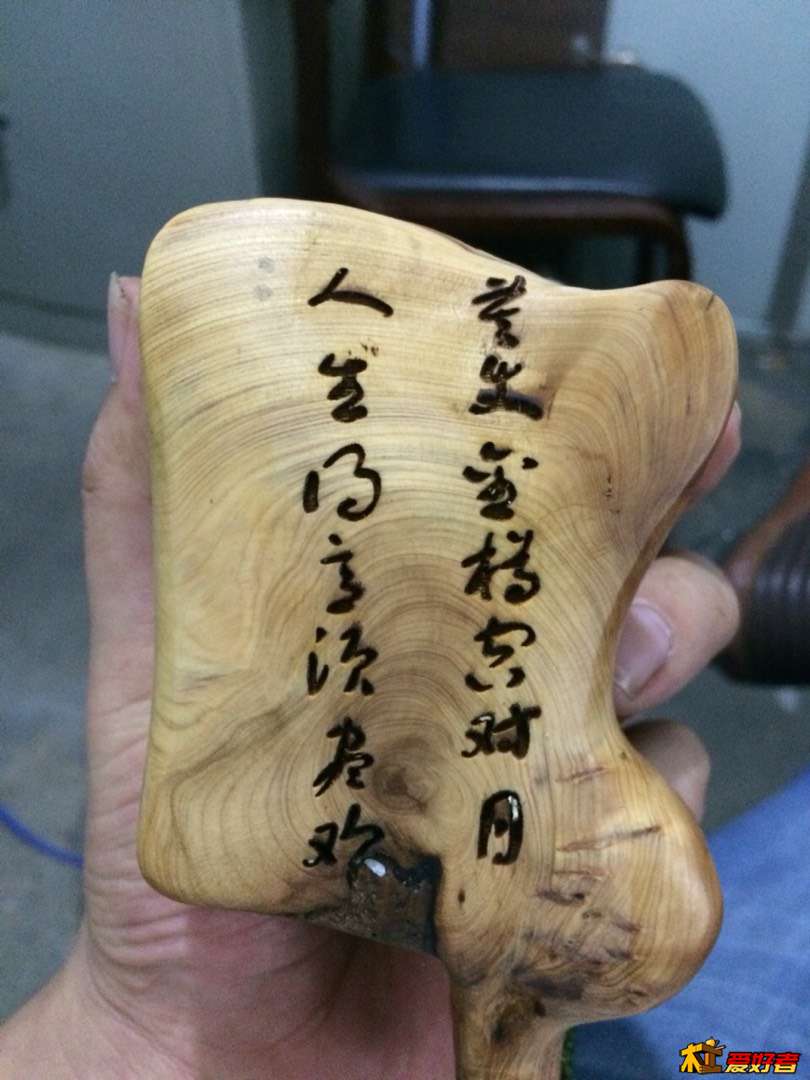 人生得意须尽欢
莫使金樽空对月
木工爱好者